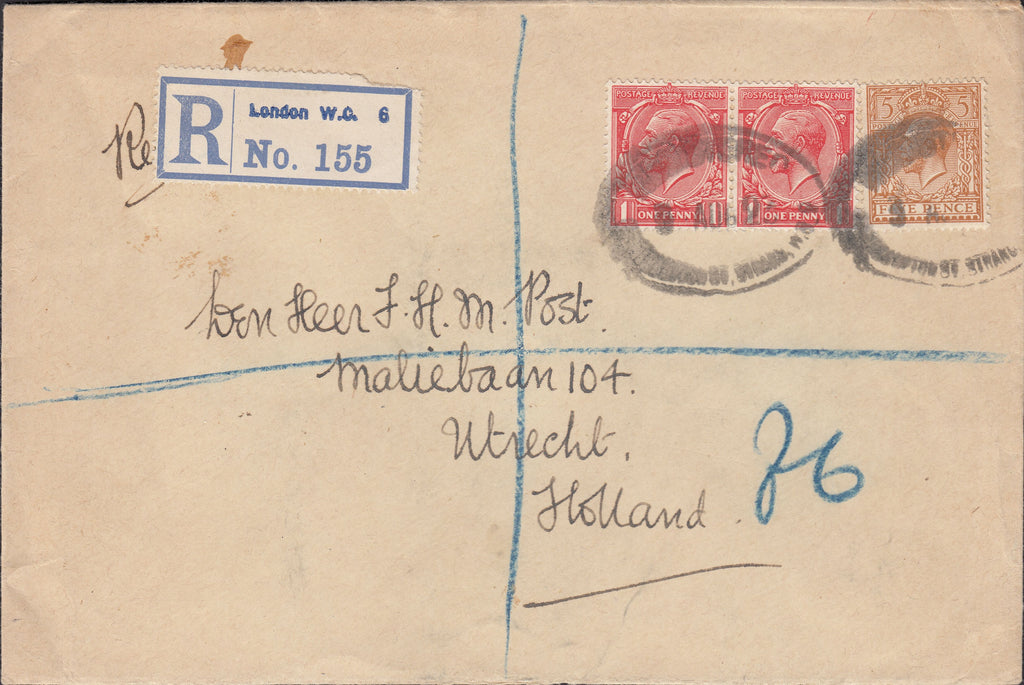 Re
R London W.C. 6
No. 155
POSTAGE REVENUE
1 ONE PENNY 1
POSTAGE REVENUE
ONE PENNY
5 5
FIVE PENCE
Den Heer F. H. M. Post.
Maliebaan 104.
Utrecht.
Holland.
26